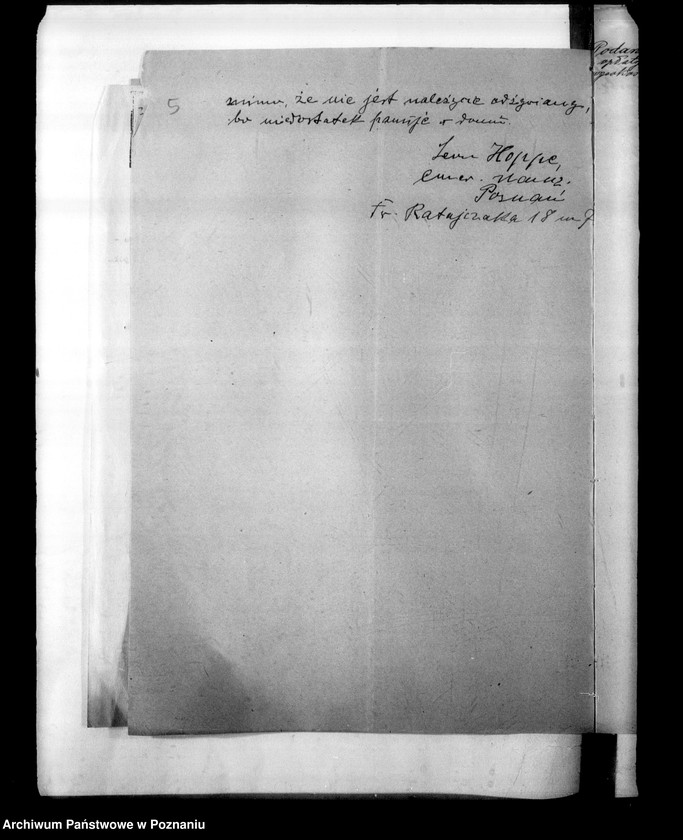 5
mimo, że nie jest należycie odżywiany,
bo niedostatek panuje w domu.
Hoppe,
emer. naucz.
Poznań
Fr. Ratajczaka 18 m 7
Podan
opłaty
Archiwum Państwowe w Poznaniu